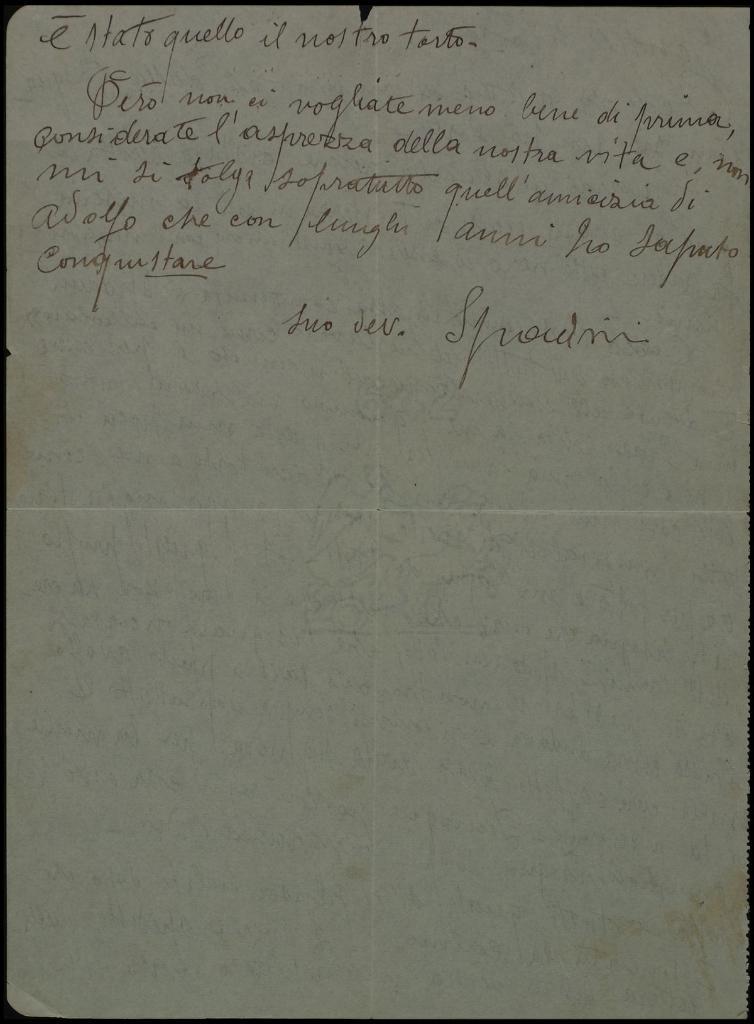 È stato quello il nostro torto.
Però non ci vogliate meno bene di prima,
considerate l'asprezza della nostra vita e, non
mi si tolga sopratutto quell'amicizia di
Adolfo che con lunghi anni ho saputo
conquistare
suo dev. Spadini